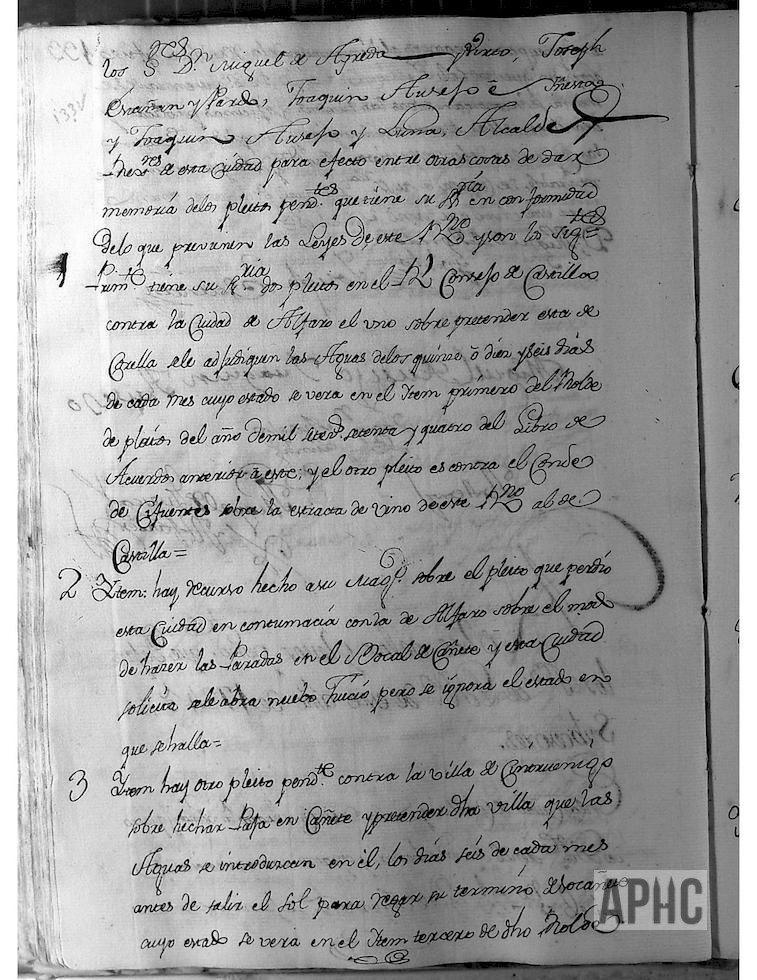 los S.res D.n Miguel de Agreda y Pinto, Joseph
Escañan y Pardo, Joaquin Ausejo è
y Joaquin Ausejo y Luna, Alcalde
de esta Ciudad para efecto entre otras cosas de dar
memoria delos pleitos pend.tes que tiene su en conformidad
delo que previenen las Leyes de este R.no y son los sig.tes=
1 Prim.te tiene su S.ria dos pleitos en el R.l Consejo de Castilla
contra la Ciudad de Alfaro el vno sobre pretender esta de
Corella sele adjudiquen las Aguas delos quinze, ô diez y seis dias
de cada mes cuyo estado se vera en el Item primero del Rolde
de pleitos del año de mil setez.s setenta y quatro del Libro de
Acuerdos anterior â este, y el otro pleito es contra el Conde
de Cifuentes sobre la estracta de vino de este R.no al de
Castilla=
2 Ytem: hay recurso hecho a su Mag.d sobre el pleito que perdio
esta Ciudad en contumacia con la de Alfaro sobre el mod
de hazer las Paradas en el Bocal de Cañete y esta Ciudad
solicita sele abra nuebo Juicio pero se ignora el estado en
que se halla=
3 Ytem hay otro pleito pend.te contra la villa de Cintruenigo
sobre hechar Presa en Cañete y pretender dha villa que las
Aguas se introduzcan en él, los dias seis de cada mes
antes de salir el Sol para regar su termino de
cuyo estado se vera en el Item tercero de dho Rolde
APHC